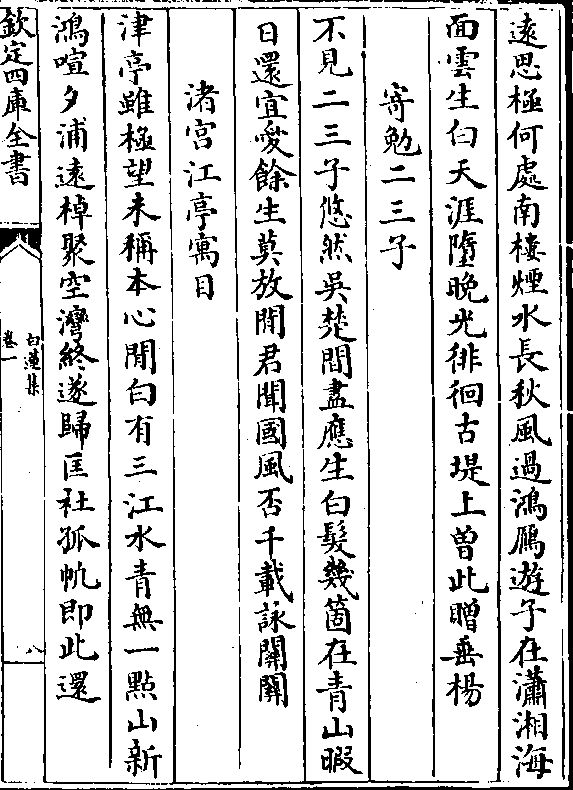 遠思極何處南樓煙水長秋風過鴻鴈遊子在瀟湘海
面雲生白天涯墮晩光徘徊古堤上曽此贈垂楊
寄勉二三子
不見二三子悠然吳楚間盡應生白髮幾箇在青山暇
日還宜愛餘生莫放閒君聞國風否千載詠關關
渚宫江亭寓目
津亭雖極望未稱本心閒白有三江水青無一點山新
鴻喧夕浦遠棹聚空灣終遂歸匡社孤帆即此還
欽定四庫全書
白蓮集
卷一
八